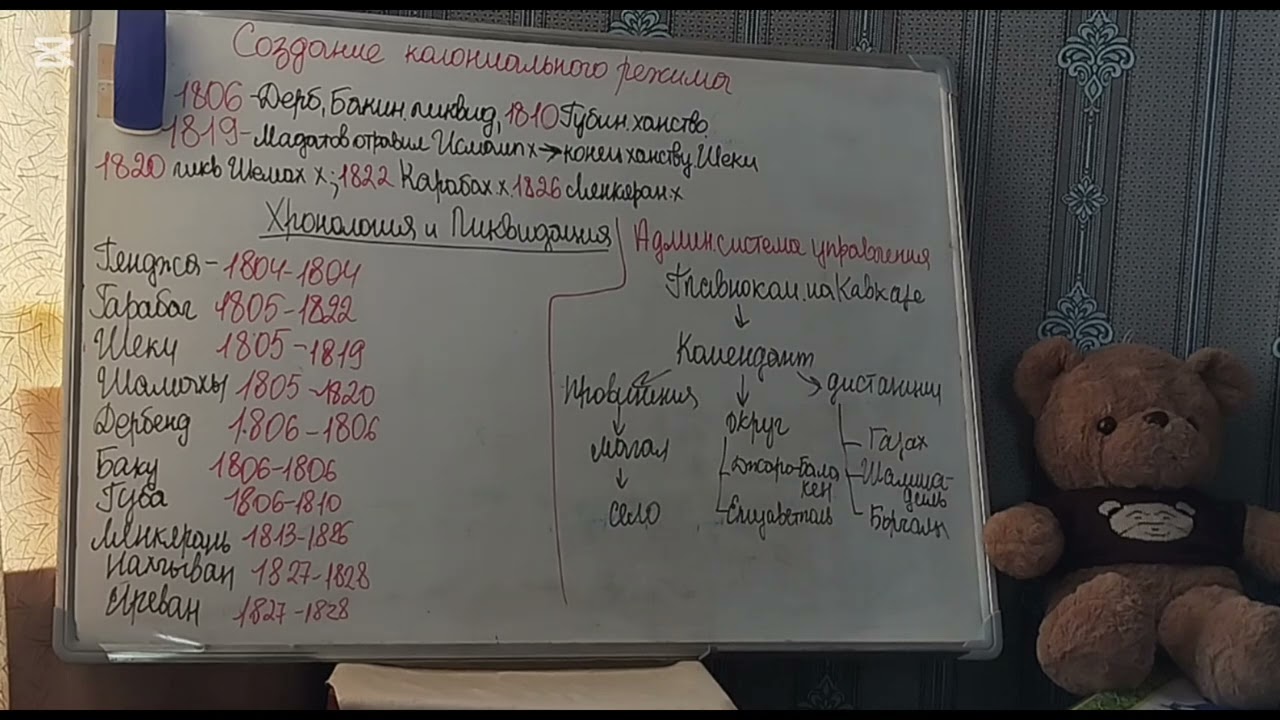 Создание колониального режима
1806 - Дерб, Бакин ликвид, 1810 Губин. ханство
1819 - Мадатов отравил Исмаил х → конец ханству Шеки
1820 ликв Шемах х; 1822 Карабах х 1826 Ленкеран х
Хронология и Ликвидация
Генджа - 1804-1804
Гарабаг 1805-1822
Шеки 1805-1819
Шамахы 1805-1820
Дербенд 1806-1806
Баку 1806-1806
Губа 1806-1810
Ленкерань 1813-1826
Нахчыван 1827-1828
Иреван 1827-1828
Админ система управления
Главноком. на Кавказе
↓
Комендант
Провинция
↓
магал
↓
село
округ
Джаро-Бала
кен
Елизаветполь
дистанции
Газах
Шамша-
диль
Борчалы